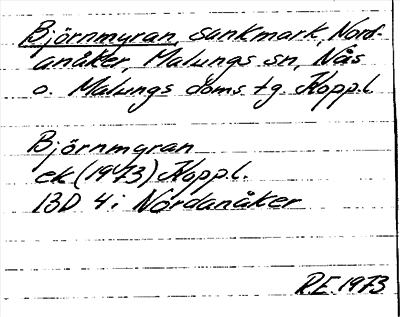 Björnmyran, sankmark, Nord-
anåker, Malungs sn, Nås
o. Malungs doms tg. Koppl.
Björnmyran
ek (1973) Koppl.
13D 4i Nordanåker
R.E. 1973